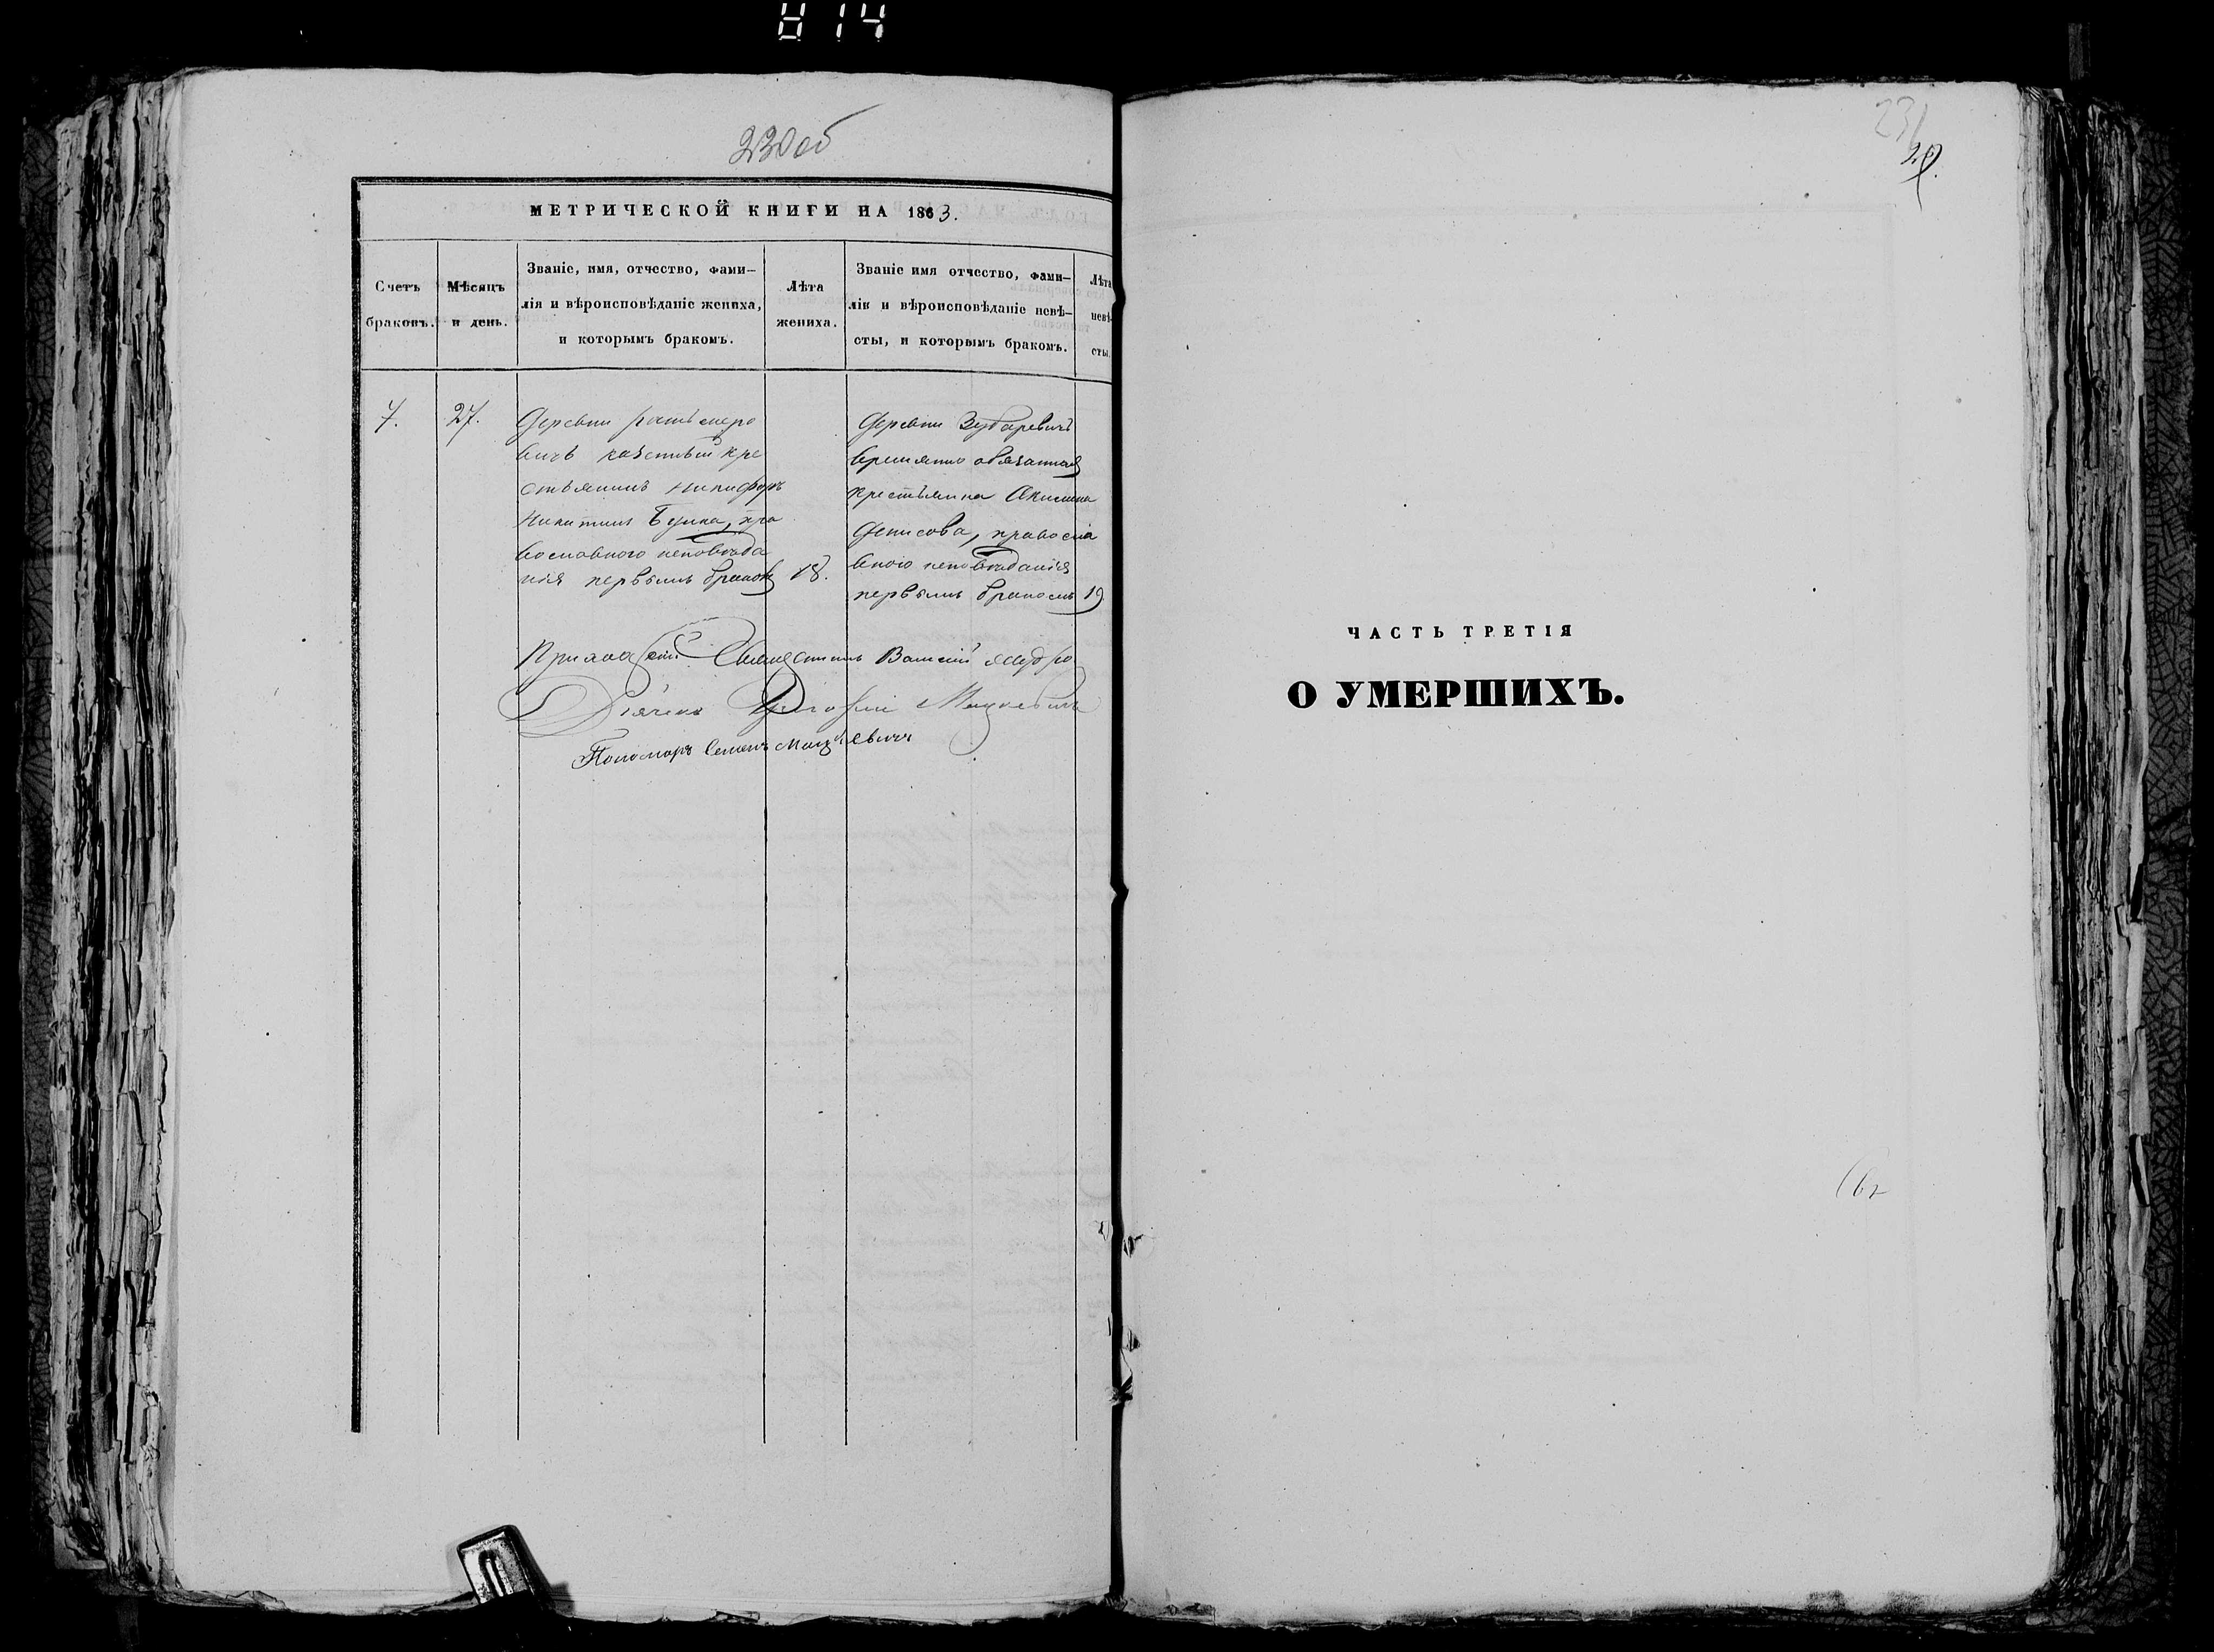 814
230 об
МЕТРИЧЕСКОЙ КНИГИ НА 1863.
Счетъ браковъ.
Мѣсяцъ и день.
Званіе, имя, отчество, фами-
лія и вѣроисповѣданіе жениха,
и которымъ бракомъ.
Лѣта
жениха.
Званіе имя отчество, фами-
лія и вѣроисповѣданіе невѣ-
сты, и которымъ бракомъ.
Лѣта
невѣ-
сты.
7.
27.
Деревни
вичъ казенный кре
стьянинъ Никифоръ
Никитинъ пра
вославного исповѣда
нія первымъ бракомъ
18.
Деревни Зубаревичъ
временно обязанная
крестьянка Акилина
Денисова, правосла
вного исповѣданія
первымъ бракомъ
19.
Приходскій Священникъ
Дьячекъ Григорій Мацкевичъ
Пономарь Семенъ Мацкевичъ
231
ЧАСТЬ ТРЕТІЯ
О УМЕРШИХЪ.